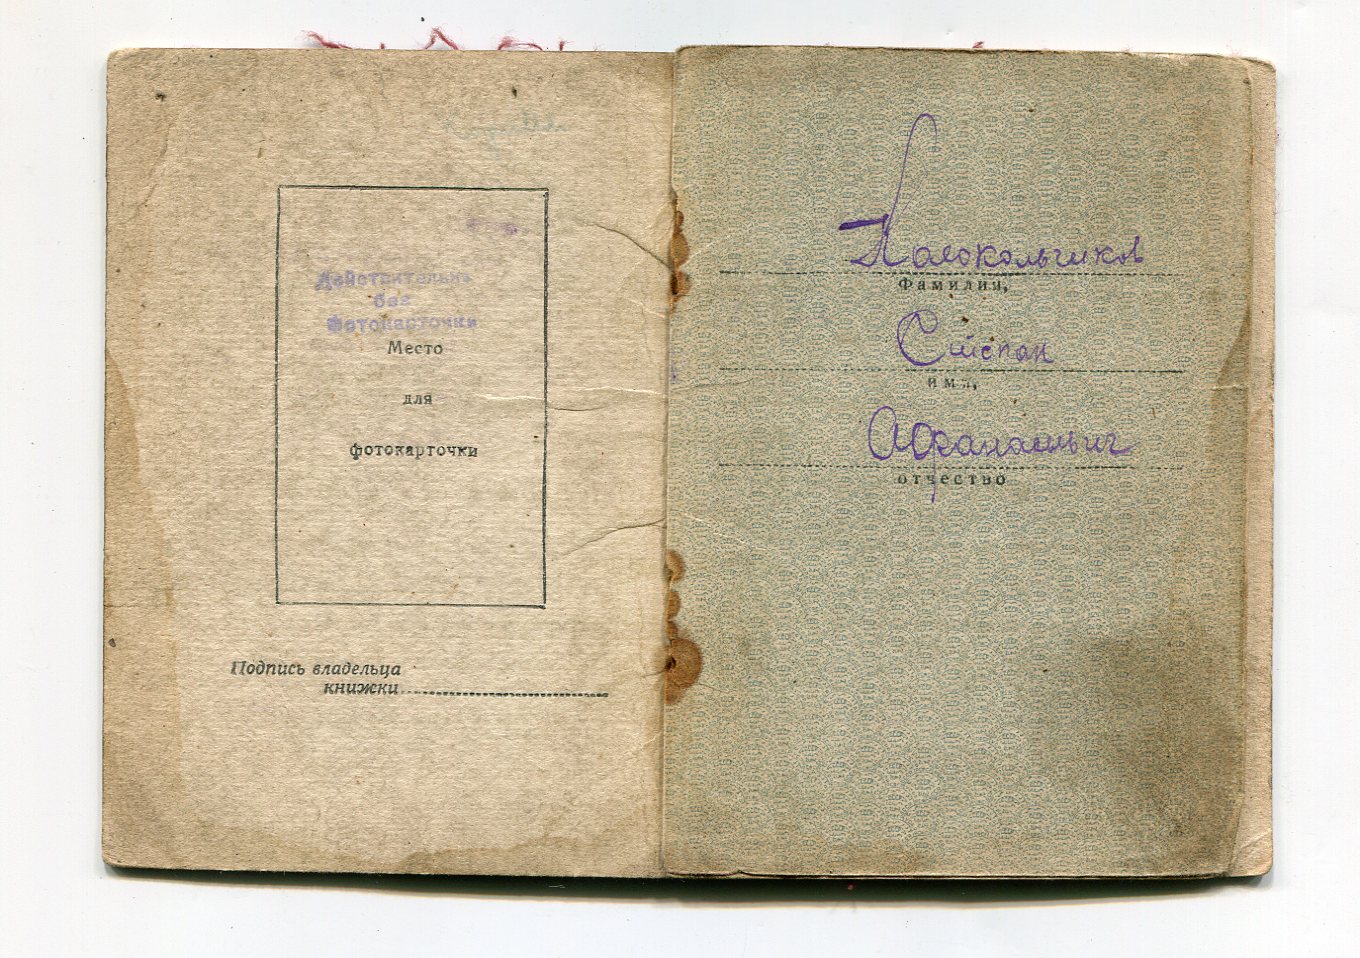 Действительна
без
фотокарточки
Место
для
фотокарточки
Подпись владельца
книжки
Колокольчиков
Фамилия,
Степан
имя,
Афанасьевич
отчество